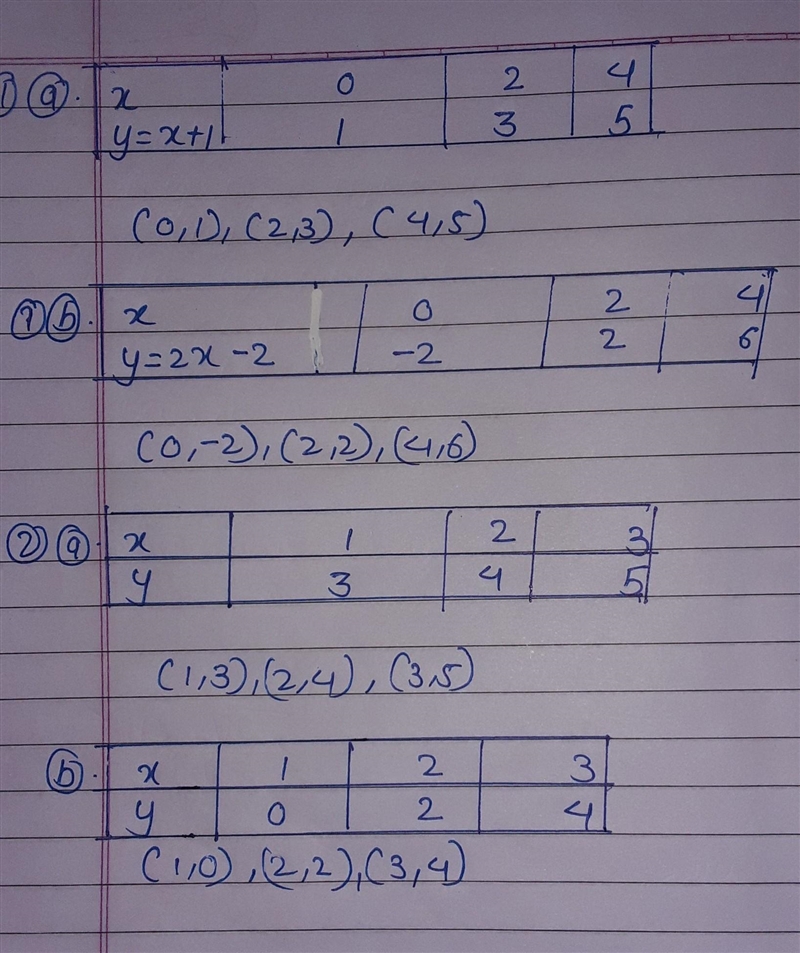 ① ⓐ. x 0 2 4
y=x+1 1 3 5
(0,1), (2,3), (4,5)
① ⓑ. x 0 2 4
y=2x-2 -2 2 6
(0,-2), (2,2), (4,6)
② ⓐ. x 1 2 3
y 3 4 5
(1,3), (2,4), (3,5)
ⓑ. x 1 2 3
y 0 2 4
(1,0), (2,2), (3,4)